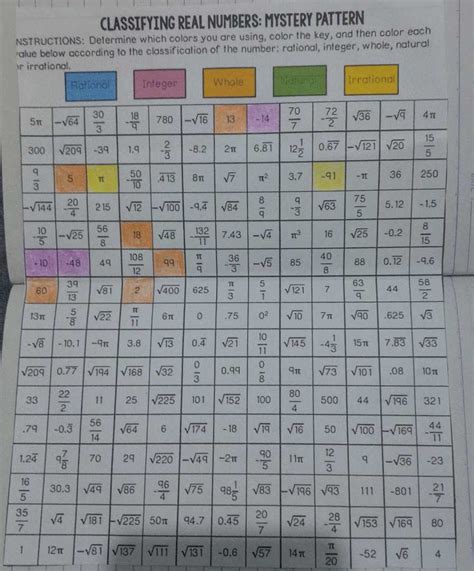 CLASSIFYING REAL NUMBERS: MYSTERY PATTERN
INSTRUCTIONS: Determine which colors you are using, color the key, and then color each
value below according to the classification of the number: rational, integer, whole, natural
or irrational.
Rational Integer Whole Natural Irrational
5π -√64 30/3 -18/9 780 -√16 13 -14 70/7 -72/2 √36 -√9 4π
300 √209 -39 1.9 -2/3 -8.2 2π 6.81 12 1/2 0.67 -√121 √20 15/5
9/3 5 π -50/10 .413 8π √7 π² 3.7 -91 -π 36 250
-√144 -20/4 215 √12 -√100 -9.4 √84 8/9 -9/3 √63 75/5 5.12 -1.5
-10/5 -√25 56/8 18 √48 -132/11 7.43 -√4 π³ 16 √25 -0.2 8/15
-10 -48 49 108/12 99 π/9 -36/3 -√5 85 40/8 88 0.12 -9.6
60 39/13 √81 2 √400 625 π/3 5/1 √121 7 63/9 44 58/2
13π -5/8 √22 π/11 6π 0 .75 0² √10 7π √90 .625 √3
-√8 -10.1 -9π 3.8 √13 0.4 √21 10/11 √145 -4 1/3 15π 7.83 √33
√209 0.77 √194 √168 √32 0/3 0.99 0/8 9π √73 √101 .08 10π
33 22/2 11 25 √225 101 √152 100 80/4 500 44 √196 321
.79 -0.3 56/14 √64 6 √174 -18 √19 √16 50 √100 -√169 -44/11
1.24 9 7/8 70 29 √220 -√49 -2π 90/5 11π 12/3 9 -√36 -23
16/5 30.3 √49 √86 -96/4 √75 98 1/5 √83 -√196 √93 111 -801 -21/7
35/7 √4 √181 -√225 50π 94.7 0.45 20/7 √24 -28/4 √153 √169 80
1 12π -√81 √137 √111 √131 -0.6 √57 14π π/20 -52 √6 4